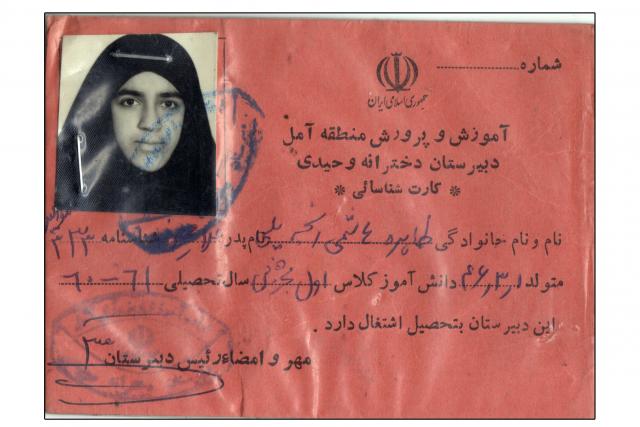 شماره
جمهوری اسلامی ایران
آموزش و پرورش منطقه آمل
دبیرستان دخترانه وحیدی
* کارت شناسائی *
نام و نام خانوادگی طاهره هاشمی نام پدر شناسنامه ۳۲۳
متولد دانش آموز کلاس اول سال تحصیلی ۶۱-۶۰
این دبیرستان بتحصیل اشتغال دارد.
مهر و امضاء رئیس دبیرستان